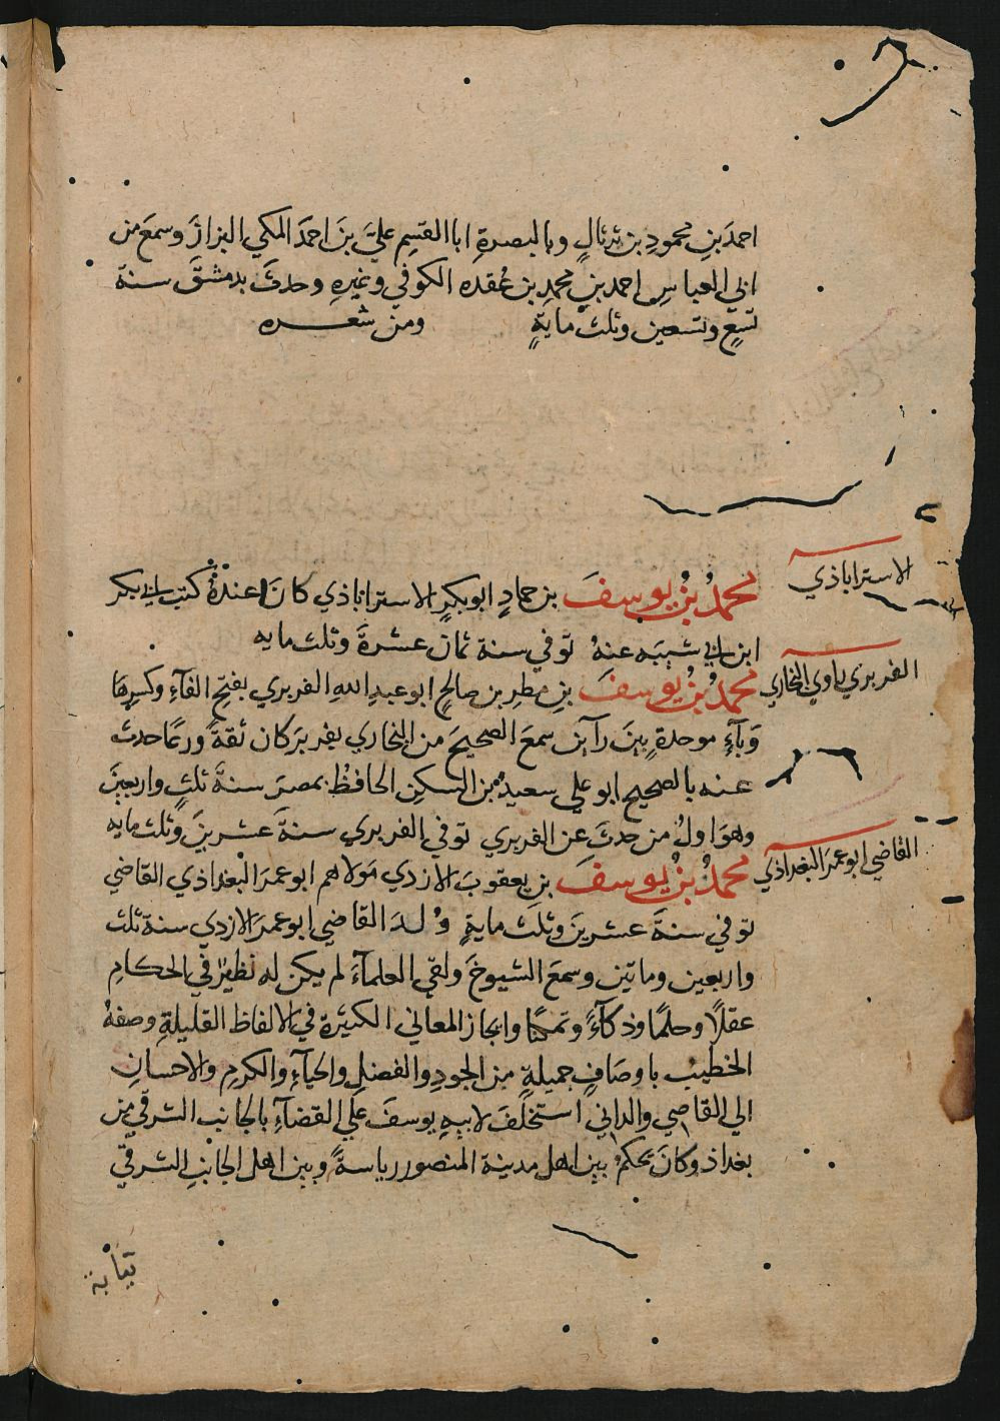 احمدَ بنِ محمودِ بن ثرثالٍ وبالبصرةِ ابا القسِم عليَّ بنَ احمدَ المكي البزازَ وسمعَ من
ابي العباسِ احمد بنِ محمدِ بن عُقده الكوفي وغيرِهِ وحدثَ بدمشقَ سنة
تسعٍ وتسعين وثلث مايةٍ ومن شعره
الاستراباذي
محمدُ بنُ يوسفَ بن حمادٍ ابو بكرٍ الاستراباذي كانَ عندهُ كتب ابي بكر
ابن ابي شيبَه عنهُ توفي سنة ثمان عشرةَ وثلث مايه
الفربري راوي البخاري
محمدُ بنُ يوسفَ بنِ مطرِ بن صالحٍ ابو عبدِ اللهِ الفربري بفتحِ الفآءِ وكسرِهَا
وَبآءٍ موحدةٍ بينَ رآين سمعَ الصحيحَ من البخاري بفربرَ كان ثقةً ورعًا حدث
عنه بالصحيح ابو علي سعيدُ بن السكنِ الحافظُ بمصرَ سنةَ ثلثٍ واربعينَ
وهوَ اولُ من حدثَ عن الفربري توفي الفربري سنةَ عشرينَ وثلث مايه
القاضي ابو عمرَ البغداذي
محمدُ بنُ يوسفَ بن يعقوبَ الازدي مَولاهم ابو عمرَ البغداذي القاضي
توفي سنةَ عشرينَ وثلثَ مايةٍ وُلدَ القاضي ابو عمرَ الازدي سنة ثلث
واربعين وماتين وسمعَ الشيوخَ ولقي العلمآءَ لم يكن له نظيرٌ في الحكامِ
عقلاً وحلمًا وذكآءً وتمكنًا وايجاز المعاني الكثيرةِ في الالفاظ القليلةِ وصفهُ
الخطيب باوصَافٍ جميلةٍ من الجودِ والفضلِ والحيآءِ والكرمِ والاحسانِ
الي القاصي والداني استخلفَ لابيهِ يوسفَ علي القضآءِ بالجانب الشرقي من
بغداذ وكانَ يحكمُ بين اهل مدينة المنصور رياسةً وبين اهل الجانبِ الشرقي
نيابة